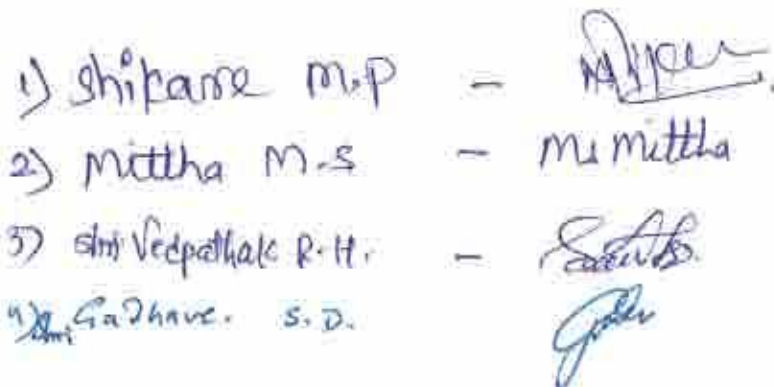 1) Shikare M.P -
2) Mittha M.S - Ms Mittha
3) Shri Vedpathak R.H. -
4) Shri Gadhave. S.D.